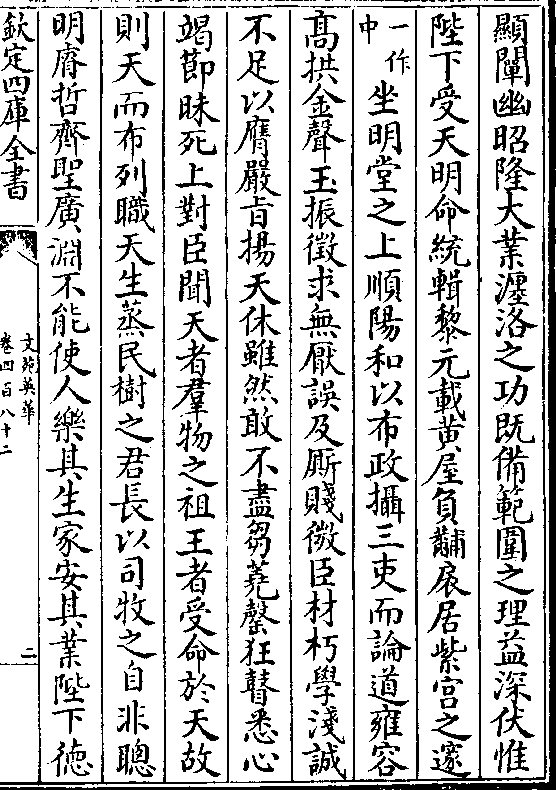 顯闡幽昭隆大業瀍洛之功既備範圍之理益深伏惟
陛下受天明命統輯黎元載黄屋負黼扆居紫宮之邃
一作中坐明堂之上順陽和以布政攝三吏而論道雍容
髙拱金聲玉振徵求無厭誤及厮賤微臣材朽學淺誠
不足以膺嚴㫖揚天休雖然敢不盡芻蕘罄狂瞽悉心
竭節昧死上對臣聞天者羣物之祖王者受命於天故
則天而布列職天生蒸民樹之君長以司牧之自非聰
明膺哲齊聖廣淵不能使人樂其生家安其業陛下徳
欽定四庫全書
文苑英華
卷四百八十二
二